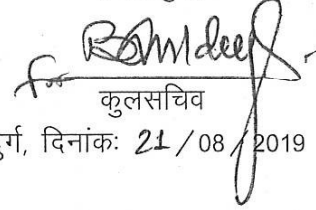 for
कुलसचिव
दुर्ग, दिनांकः 21 / 08 / 2019